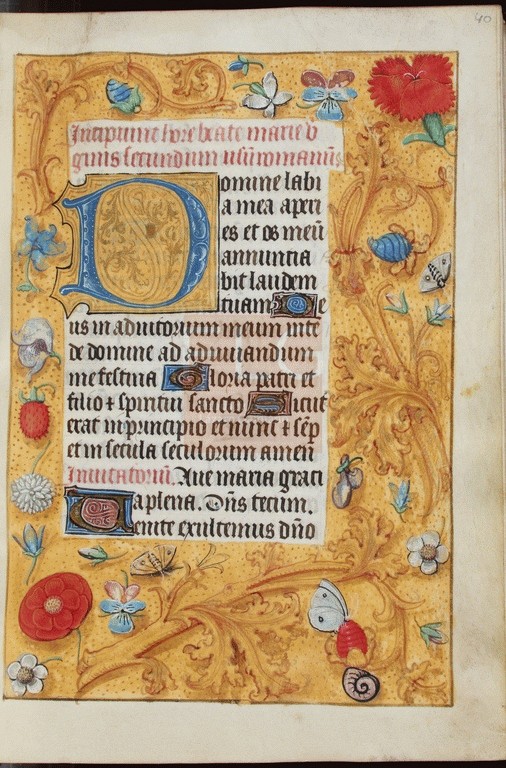 40
Incipiunt hore beate marie v
ginis secundum usū romanum
Domine labi
a mea aperi
es et os meū
annuntia
bit laudem
tuam De
us in adiutorium meum inte
de domine ad adiuuandum
me festina Gloria patri et
filio ⁊ spiritui sancto Sicut
erat in principio et nunc ⁊ sēp
et in secula seculorum amen
Inuitatoriū. Aue maria graci
a plena. Dn̄s tecum.
Venite exultemus dn̄o